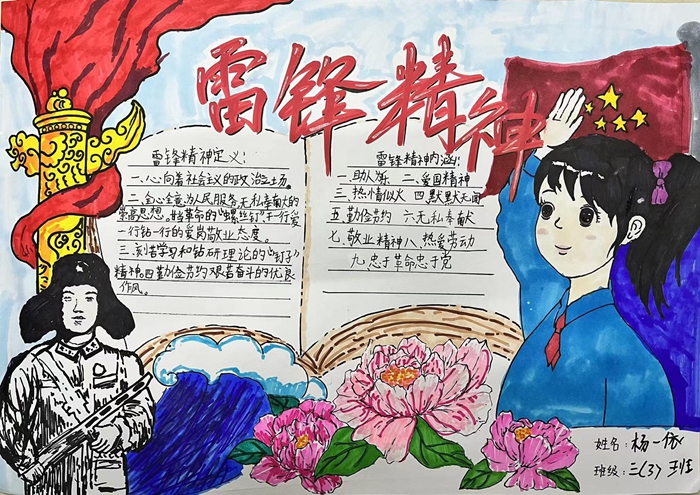 雷锋精神
雷锋精神定义:
一、心向着社会主义的政治立场。
二、全心全意为人民服务无私奉献的
崇高思想。甘当革命的"螺丝钉"干一行爱
一行钻一行的爱岗敬业态度。
三、刻苦学习和钻研理论的"钉子"
精神。四勤俭节约艰苦奋斗的优良
作风。
雷锋精神内涵:
一、助人为乐 二、爱国精神
三、热情似火 四默默无闻
五勤俭节约 六无私奉献
七、敬业精神 八、热爱劳动
九忠于革命忠于党
姓名:杨一
班级:三(3)班